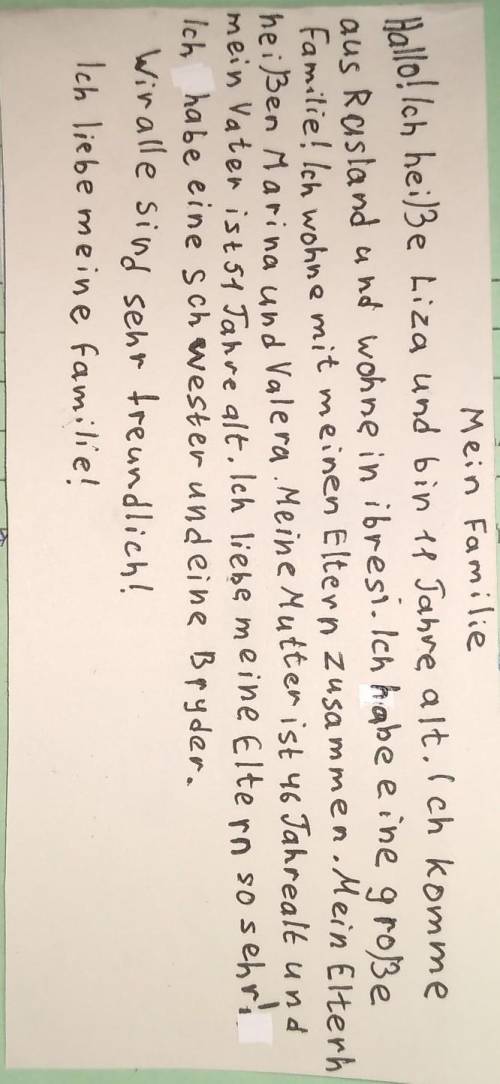 Mein Familie
Hallo! Ich heiße Liza und bin 11 Jahre alt. Ich komme
aus Rusland und wohne in ibresi. Ich habe eine große
Familie! Ich wohne mit meinen Eltern zusammen. Mein Elterh
heißen Marina und Valera. Meine Mutter ist 46 Jahrealt und
mein Vater ist 51 Jahre alt. Ich liebe meine Eltern so sehr!
Ich habe eine schwester und eine Bryder.
Wir alle sind sehr freundlich!
Ich liebe meine familie!